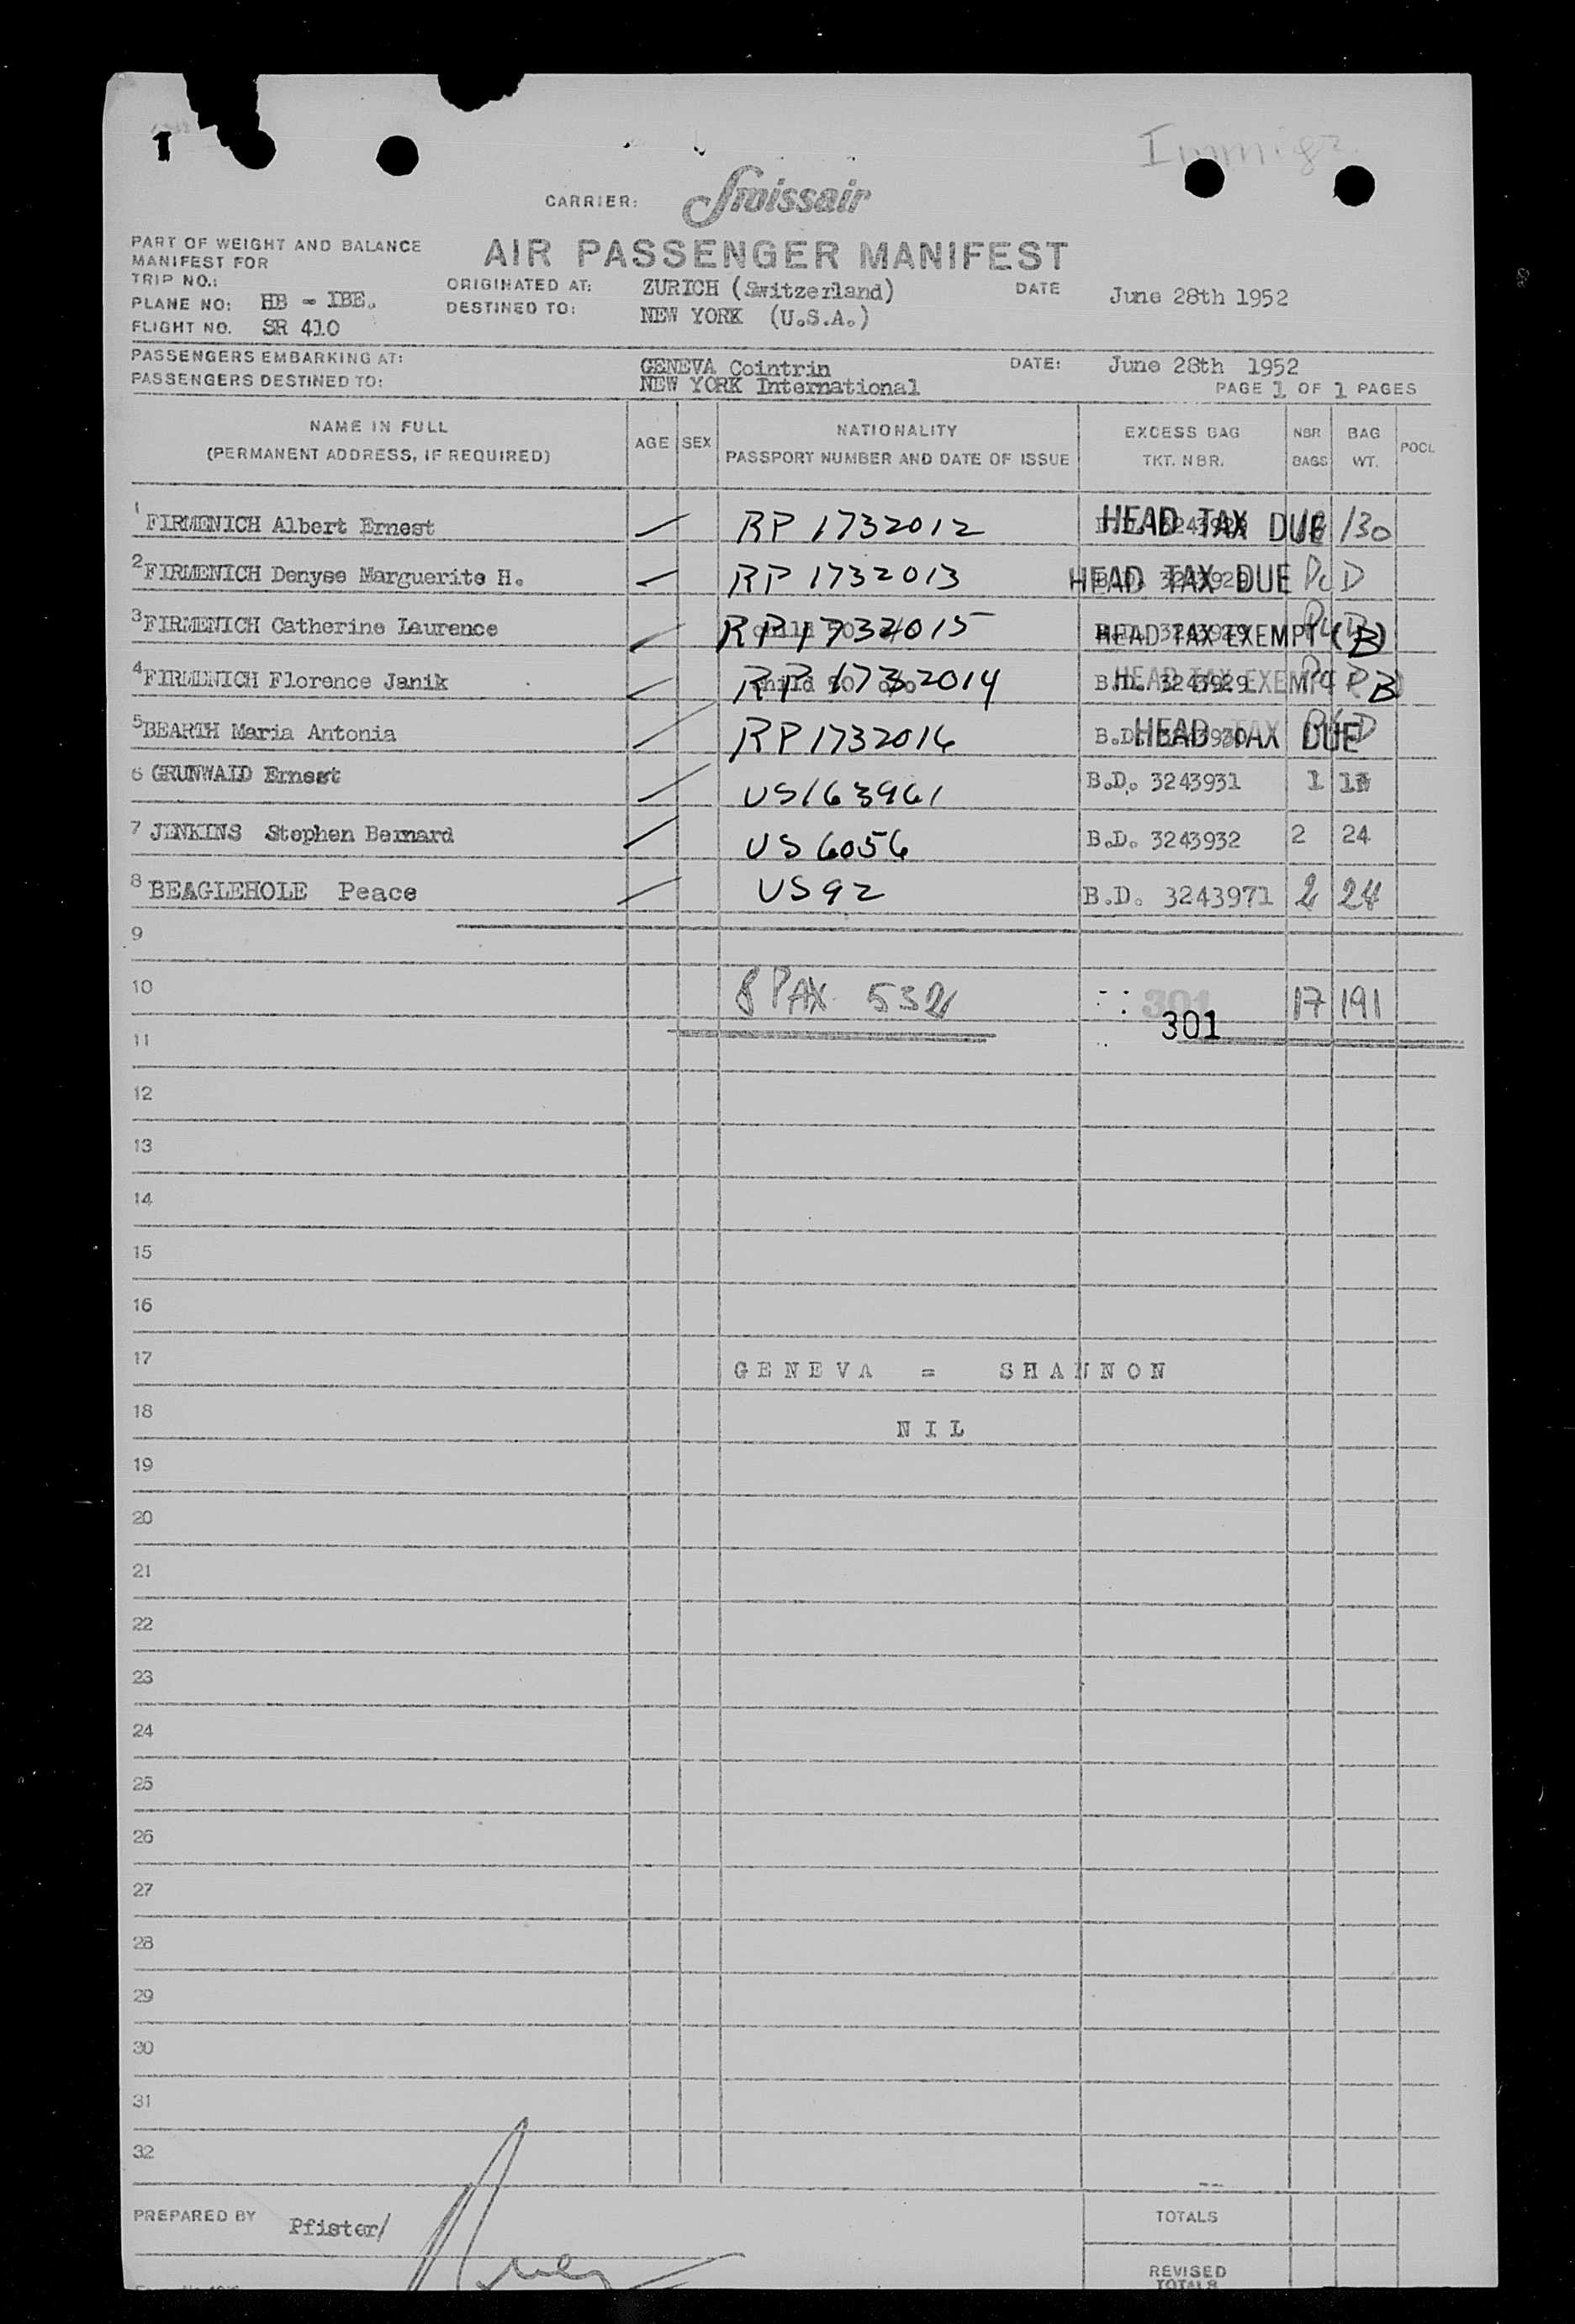 1
Immigr
CARRIER: Swissair
PART OF WEIGHT AND BALANCE
MANIFEST FOR
AIR PASSENGER MANIFEST
TRIP NO.:
ORIGINATED AT: ZURICH (Switzerland) DATE June 28th 1952
PLANE NO: HB - IBE.
DESTINED TO: NEW YORK (U.S.A.)
FLIGHT NO. SR 410
PASSENGERS EMBARKING AT: GENEVA Cointrin DATE: June 28th 1952
PASSENGERS DESTINED TO: NEW YORK International PAGE 1 OF 1 PAGES
NAME IN FULL
(PERMANENT ADDRESS, IF REQUIRED)
AGE SEX
NATIONALITY
PASSPORT NUMBER AND DATE OF ISSUE
EXCESS BAG
TKT. NBR.
NBR
BAGS
BAG
WT.
POCL
1 FIRMENICH Albert Ernest RP 1732012 HEAD TAX DUE 130
2 FIRMENICH Denyse Marguerite H. RP 1732013 HEAD TAX DUE
3 FIRMENICH Catherine Laurence RP 1732015 HEAD TAX EXEMPT (B)
4 FIRMENICH Florence Janik child RP 1732014 B.D. 3243929 HEAD TAX EXEMPT B
5 BEARTH Maria Antonia RP 1732016 B.D. 3243930 HEAD TAX DUE
6 GRUNWALD Ernest US163961 B.D. 3243931 1
7 JENKINS Stephen Bernard US 6056 B.D. 3243932 2 24
8 BEAGLEHOLE Peace US 92 B.D. 3243971 2 24
9
10 8 PAX 301 17 191
301
11
12
13
14
15
16
17 GENEVA = SHANNON
18 NIL
19
20
21
22
23
24
25
26
27
28
29
30
31
32
PREPARED BY Pfister/
TOTALS
REVISED
TOTALS